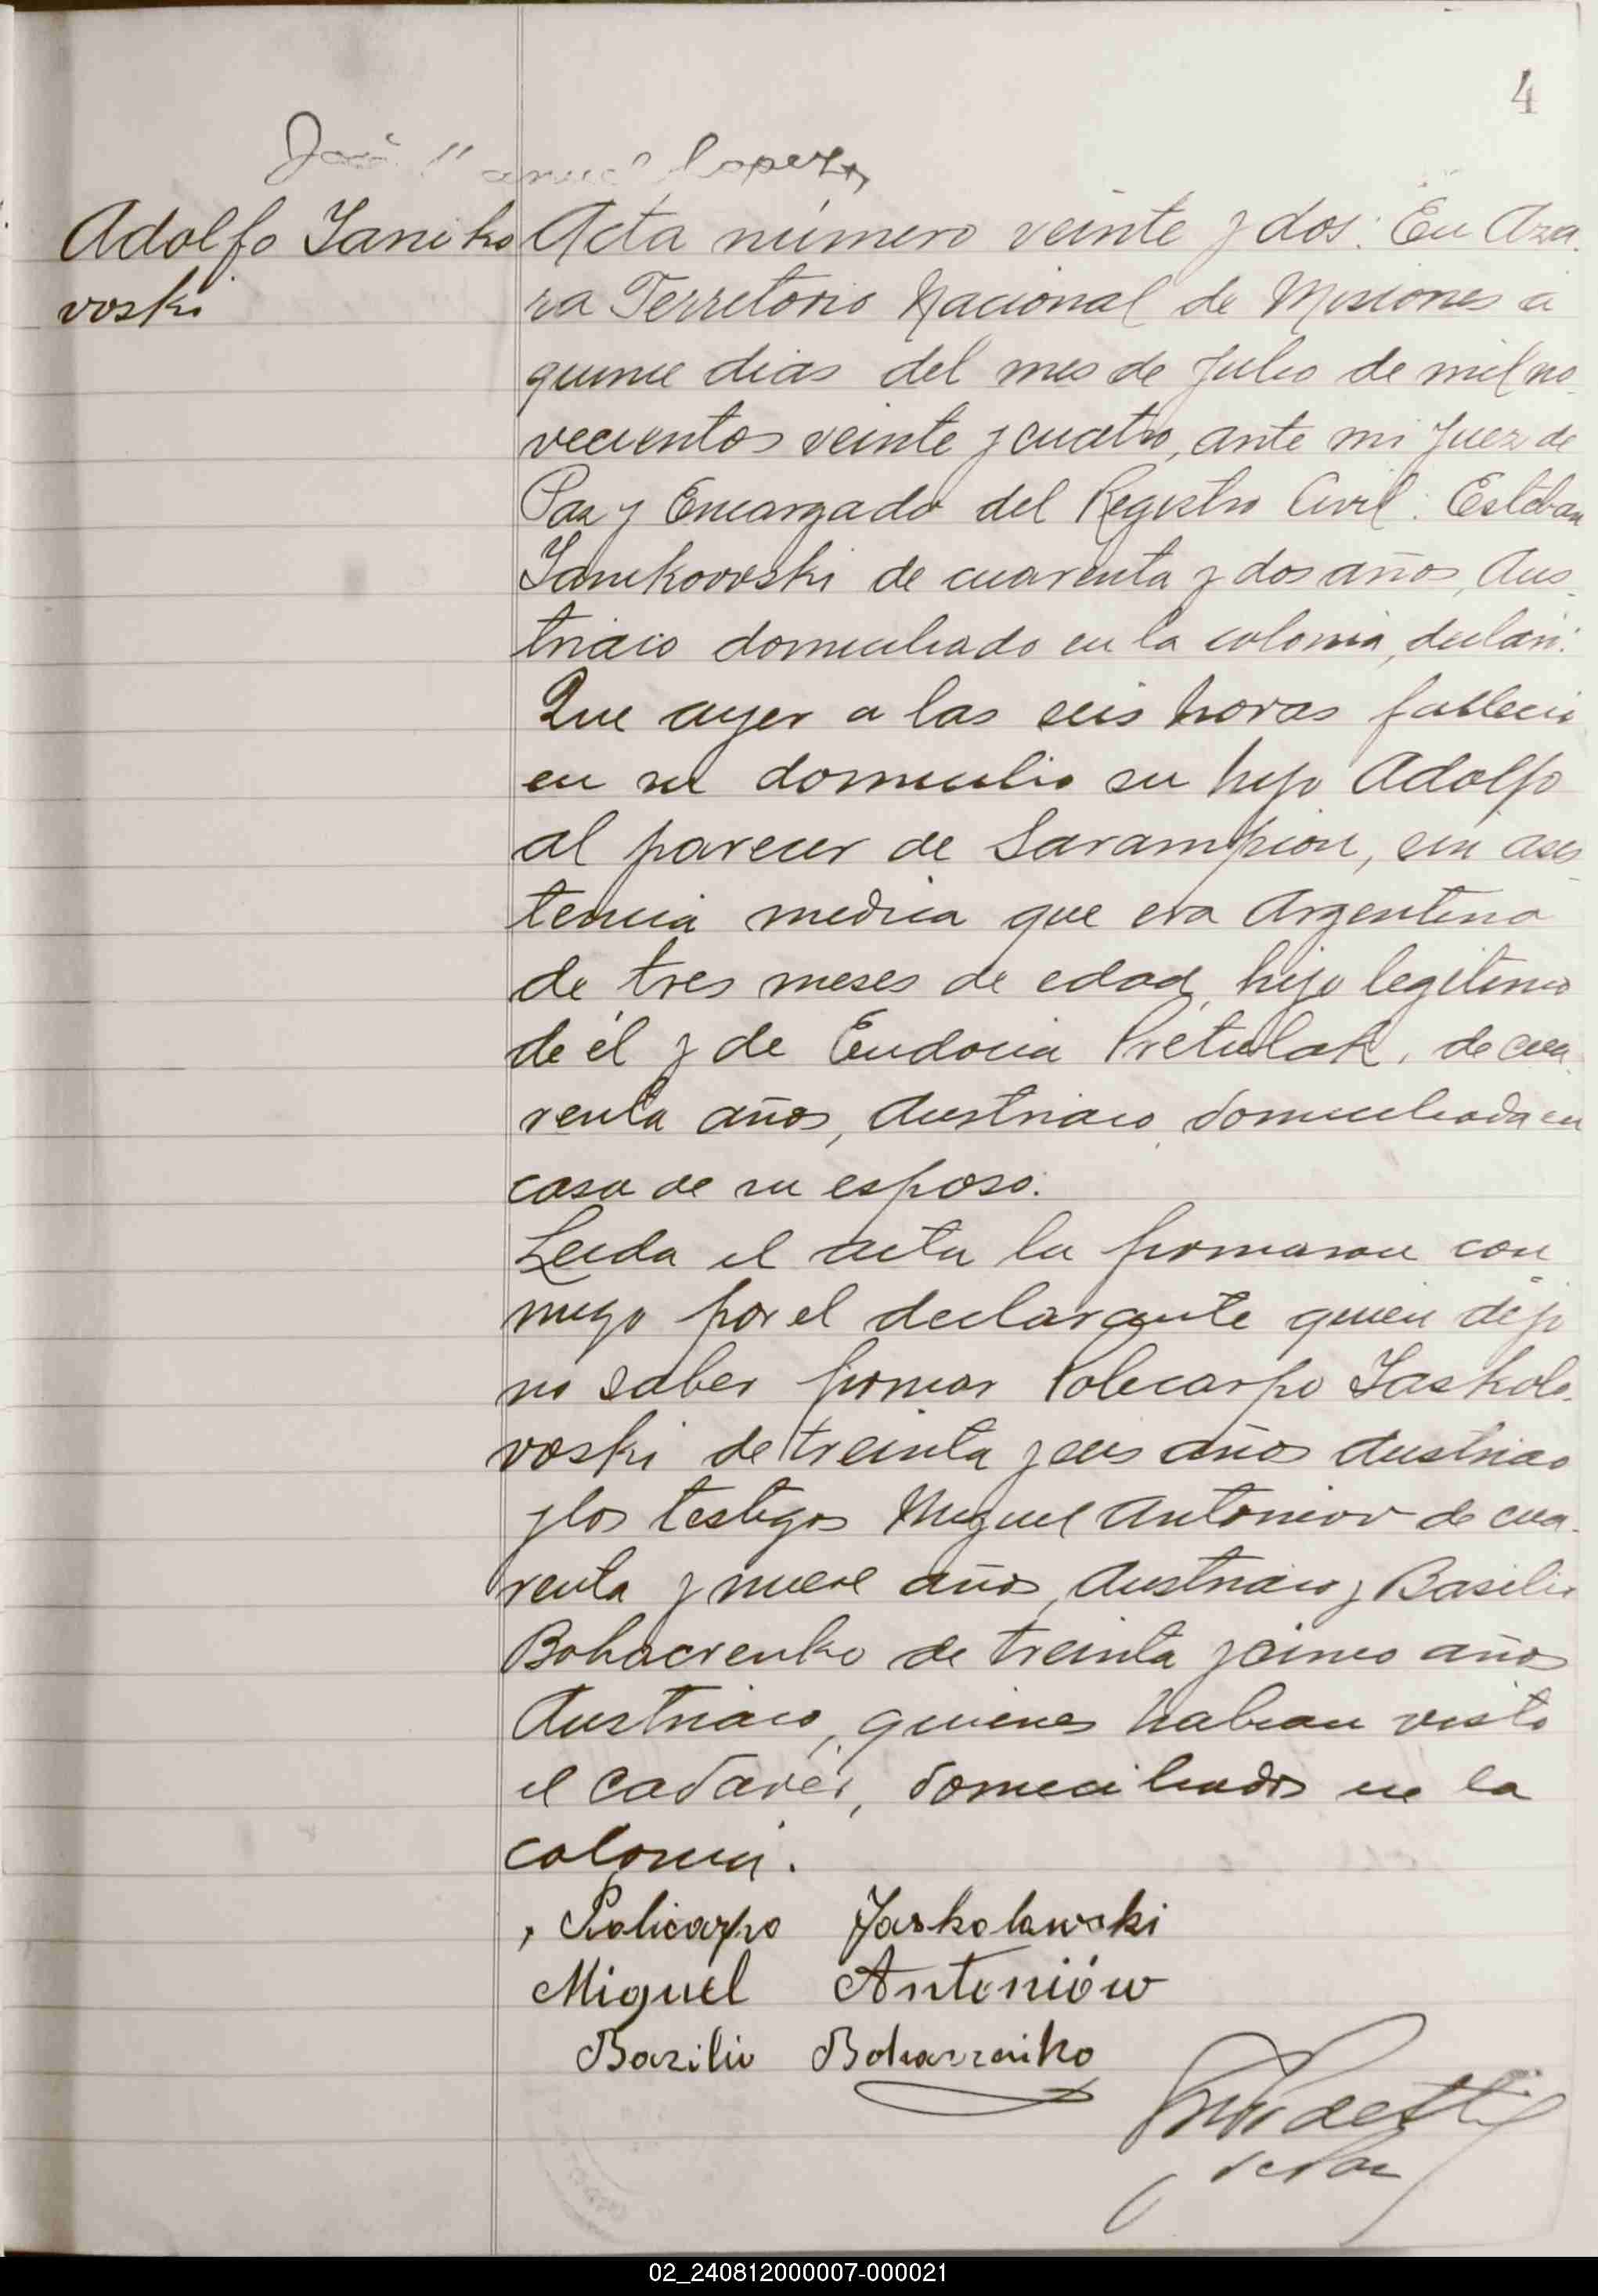 4
José Manuel Lopez
Adolfo Yaniko
voski
Acta número veinte y dos: En Aza
ra Territorio Nacional de Misiones a
quince dias del mes de Julio de mil no
vecientos veinte y cuatro, ante mi Juez de
Paz y Encargado del Registro Civil: Esteban
Yanikovoski de cuarenta y dos años, Aus
triaco domiciliado en la colonia, declaró:
Que ayer a las seis horas fallecio
en su domicilio su hijo Adolfo
al parecer de Sarampion, sin asis
tencia medica que era Argentino
de tres meses de edad, hijo legitimo
de él y de Eudocia Pretulak, de cua
renta años, Austriaco, domiciliada en
casa de su esposo.
Leida el acta la firmaron con
migo por el declarante quien dijo
no saber firmar Policarpo Yaskolo
voski de treinta y seis años Austriaco
y los testigos Miguel Antoniov de cua
renta y nueve años, Austriaco y Basilio
Bohacrenko de treinta y cinco años
Austriaco, quienes habian visto
el cadaver, domiciliados en la
colonia.
Policarpo Jaskolowski
Miguel Antoniów
Bazilio
de Paz
02_240812000007-000021